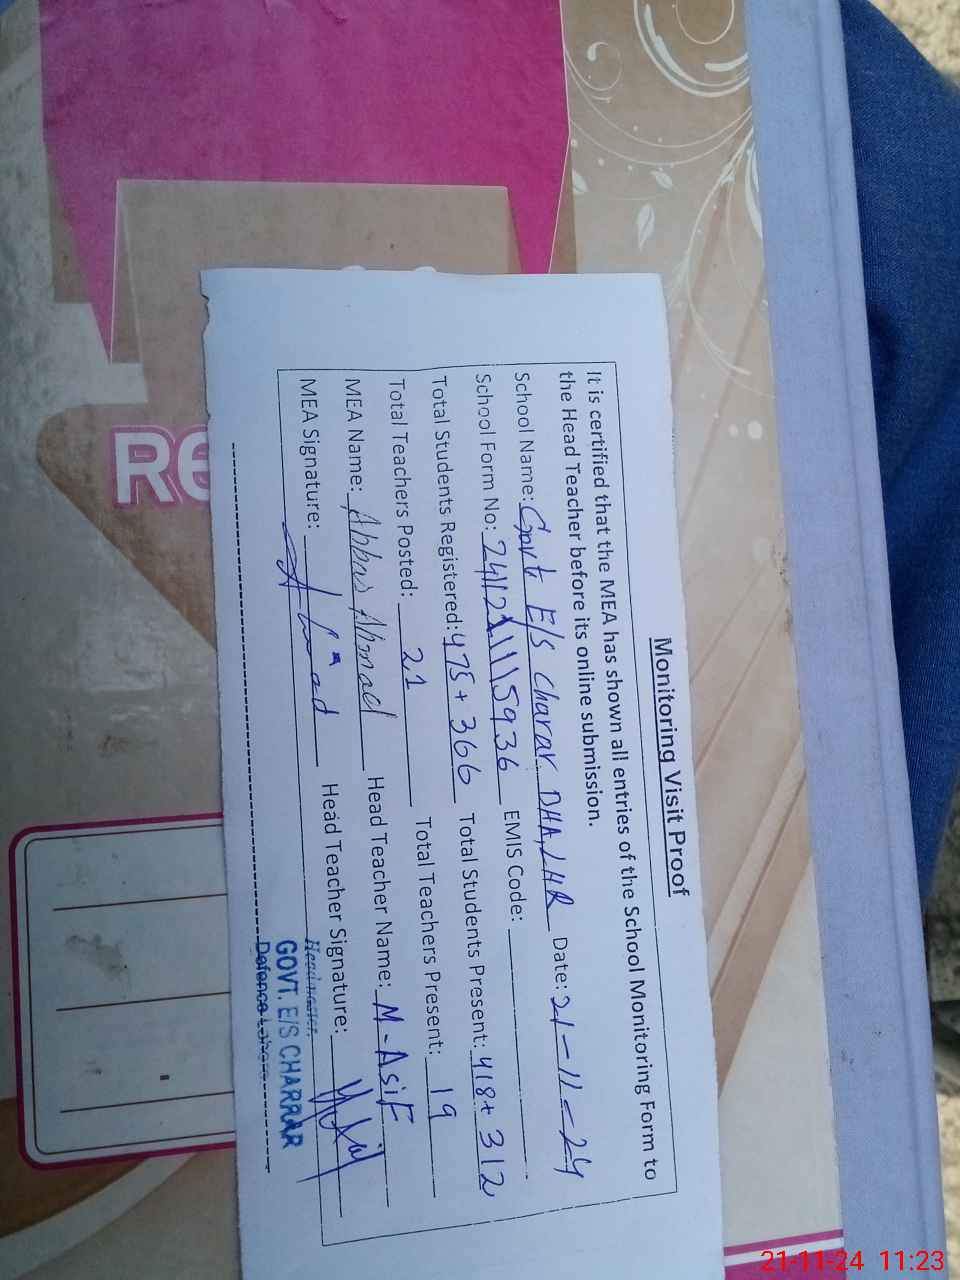 Monitoring Visit Proof
It is certified that the MEA has shown all entries of the School Monitoring Form to
the Head Teacher before its online submission.
School Name: Govt E/S Charar DHA, LHR Date: 21-11-24
School Form No: EMIS Code:
Total Students Registered: 475+366 Total Students Present: 418+312
Total Teachers Posted: 21 Total Teachers Present: 19
MEA Name: Abbas Ahmad Head Teacher Name: M-Asif
MEA Signature: Head Teacher Signature:
Headmaster
GOVT. E/S CHARRAR
Defence Lahore
Re
21-11-24 11:23